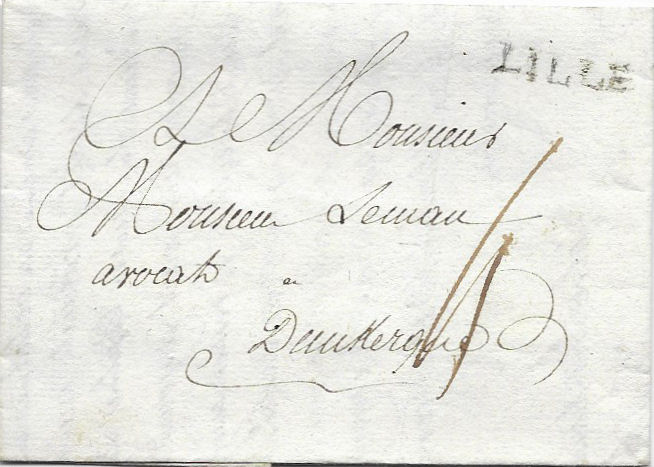 LILLE
A Monsieur
Monsieur Leman
avocat a
Dunkerque